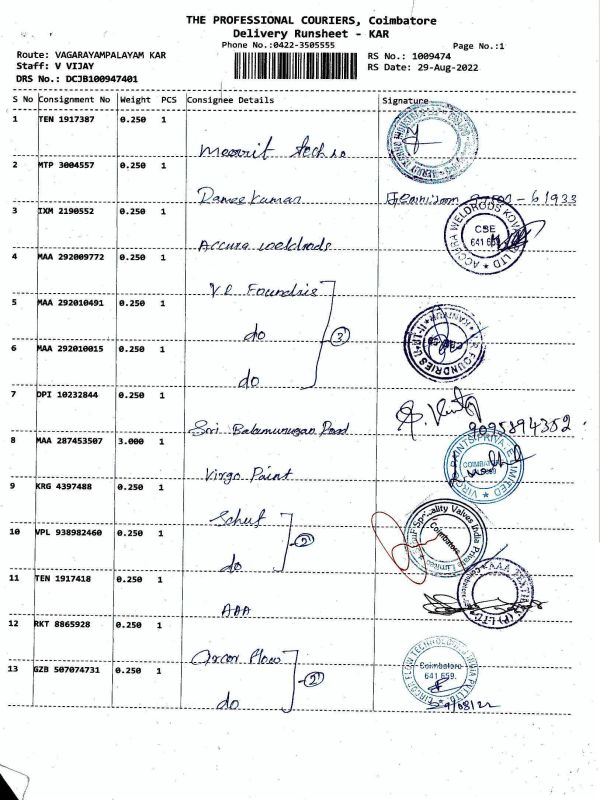 THE PROFESSIONAL COURIERS, Coimbatore
Delivery Runsheet - KAR
Phone No.:0422-3505555
Page No.:1
Route: VAGARAYAMPALAYAM KAR
RS No.: 1009474
Staff: V VIJAY
RS Date: 29-Aug-2022
DRS No.: DCJB100947401
S No Consignment No Weight PCS Consignee Details Signature
1 TEN 1917387 0.250 1
2 MTP 3004557 0.250 1
3 IXM 2190552 0.250 1 Accura weldrods
ACCURA WELDRODS CBE 641 659
4 MAA 292009772 0.250 1 V.R Foundris
5 MAA 292010491 0.250 1 do 3
6 MAA 292010015 0.250 1 do
7 DPI 10232844 0.250 1 Sri Balamurugan
9095894352
8 MAA 287453507 3.000 1 Virgo Paint
VIRGO PAINTS PRIVATE LIMITED
9 KRG 4397488 0.250 1
Speciality Valves India Private Limited Coimbatore
10 VPL 938982460 0.250 1 do 2
11 TEN 1917418 0.250 1 AAA
AAA TEXTILES (P) LTD
12 RKT 8865928 0.250 1
13 GZB 507074731 0.250 1 do 2
Coimbatore
641 659.